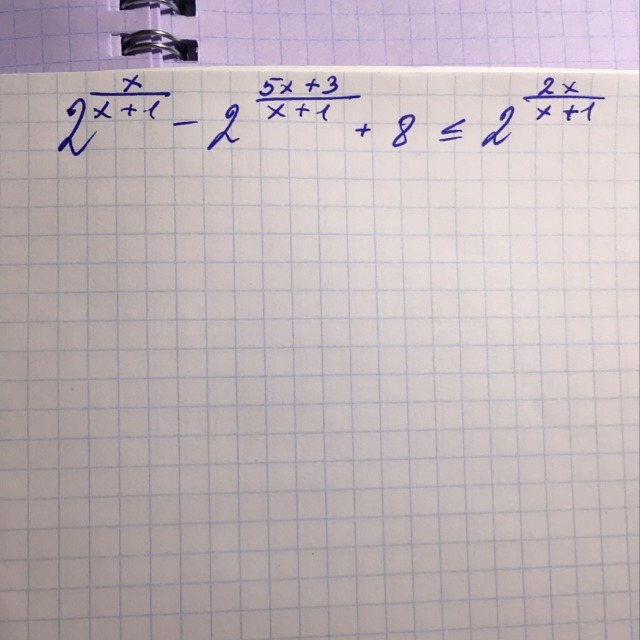 2^{\frac{x}{x+1}} - 2^{\frac{5x+3}{x+1}} + 8 ≤ 2^{\frac{2x}{x+1}}